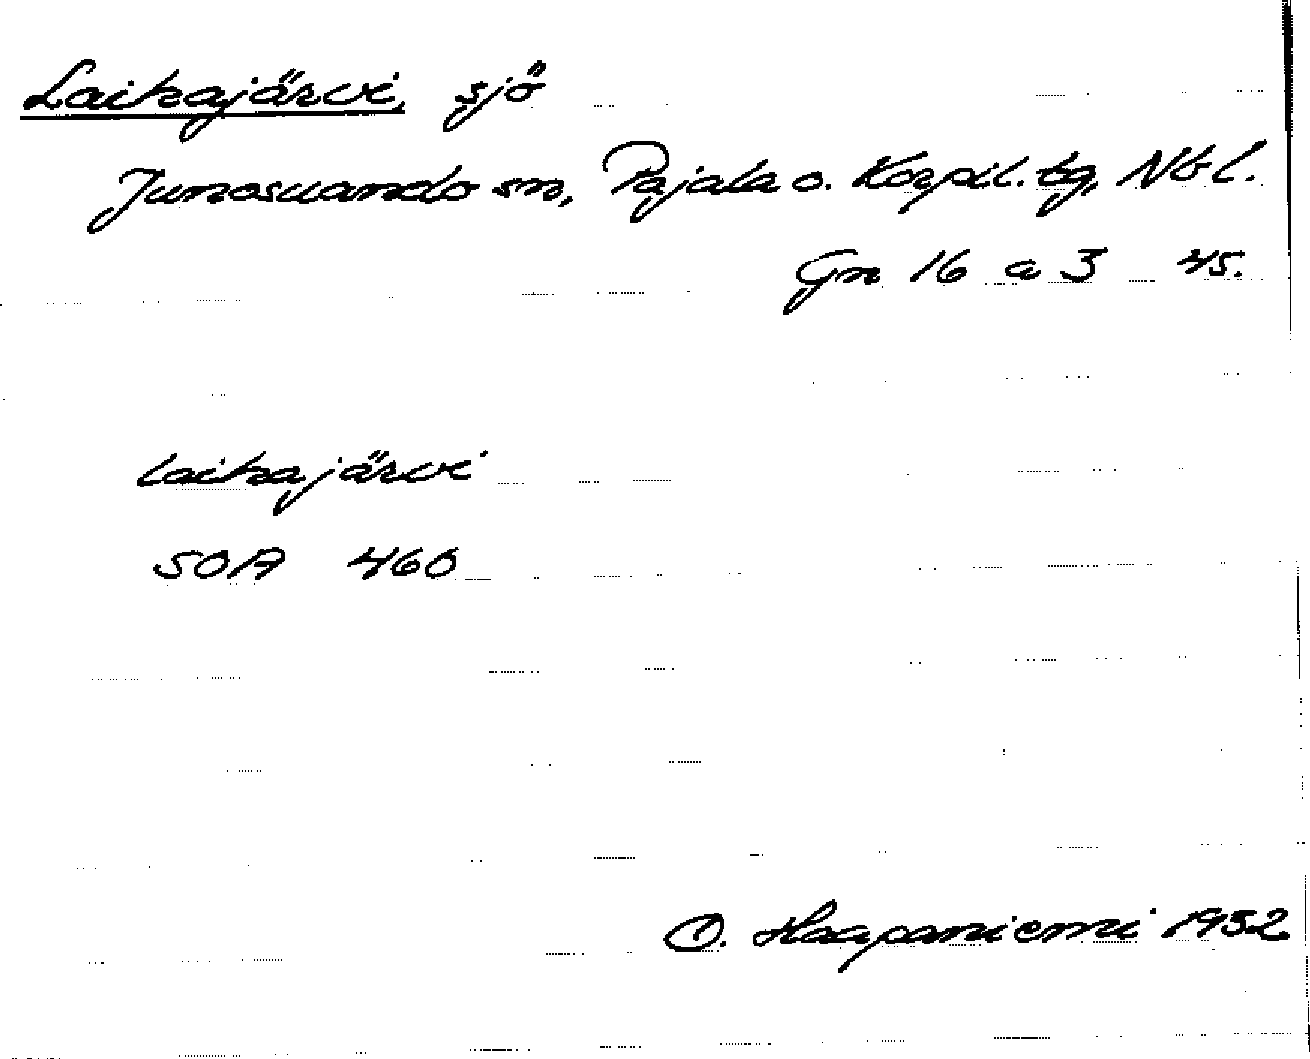 Laikajärvi, sjö
Junosuando sn, Pajala o. Korpil. tg, Nb l.
Gn 16 a 3 45.
laikajärvi
SOA 460
O. Haapaniemi 1932